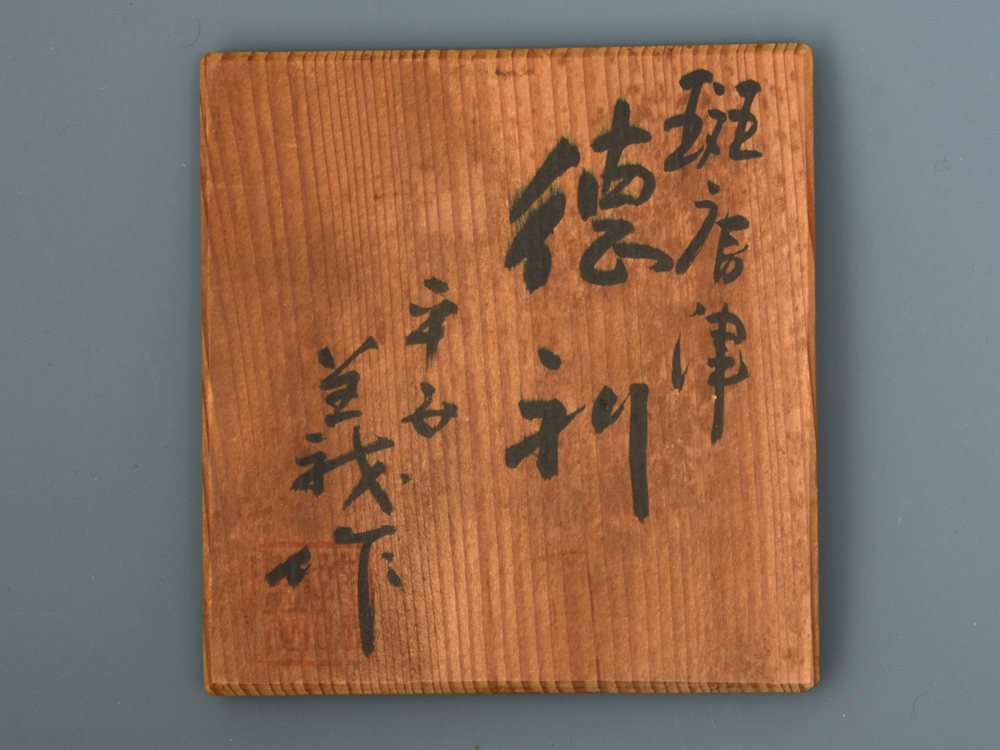 斑唐津
徳利
平子
義作